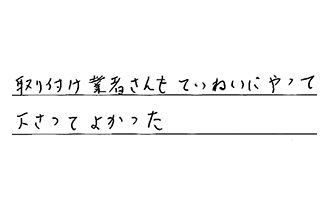 取り付け業者さんもていねいにやって
下さってよかった